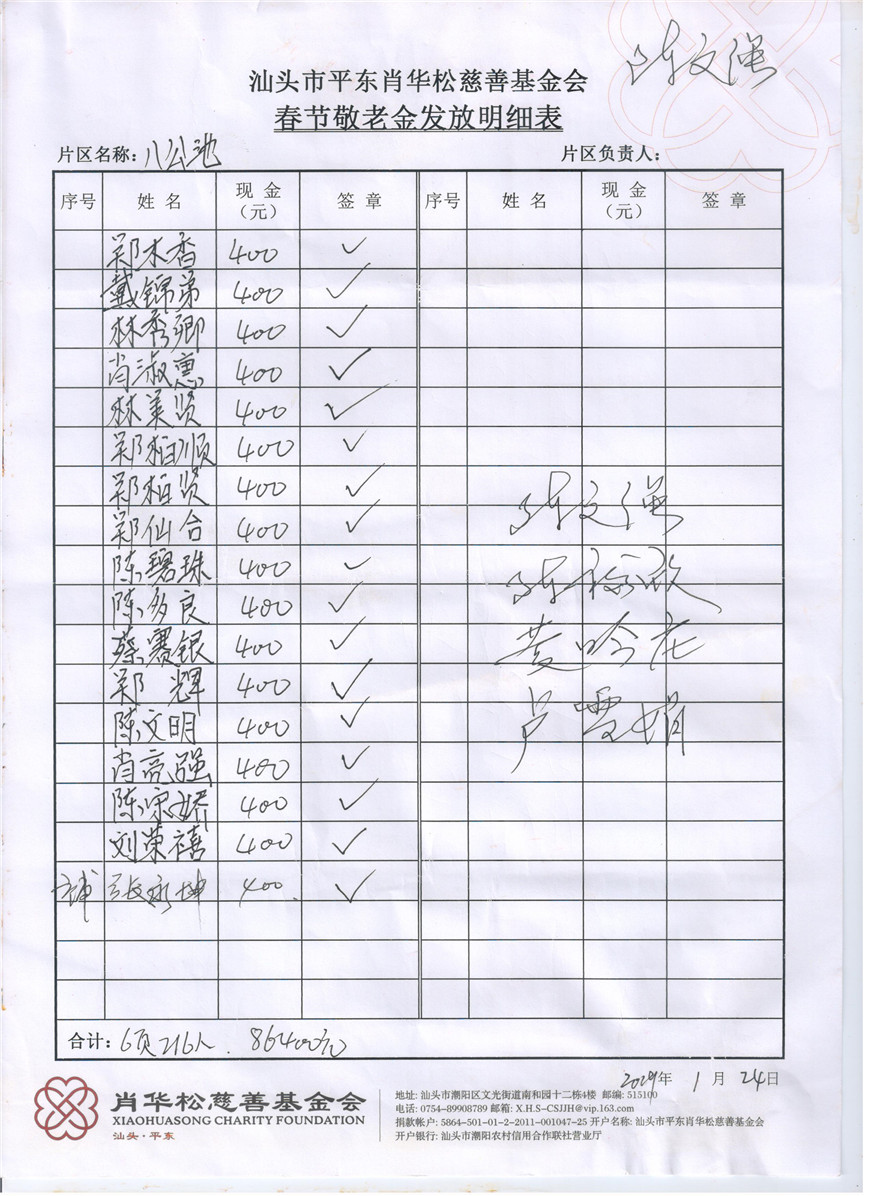 陈文强
汕头市平东肖华松慈善基金会
春节敬老金发放明细表
片区名称：八公池 片区负责人：
序号 姓名 现金（元） 签章 序号 姓名 现金（元） 签章
郑木香 400 ✓
戴锦弟 400 ✓
林秀卿 400 ✓
肖淑惠 400 ✓
林美贤 400 ✓
郑柏顺 400 ✓
郑柏贤 400 ✓
郑仙合 400 ✓ 陈文强
陈碧珠 400 ✓
陈多良 400 ✓
蔡赛银 400 ✓ 黄吟花
郑辉 400 ✓
陈文明 400 ✓ 卢雪娟
肖亮强 400 ✓
陈宋娇 400 ✓
刘荣禧 400 ✓
补 张永坤 400 ✓
合计：6页216人. 86400元
2019年 1月 24日
肖华松慈善基金会
XIAOHUASONG CHARITY FOUNDATION
汕头·平东
地址: 汕头市潮阳区文光街道南和园十二栋4楼 邮编: 515100
电话: 0754-89908789 邮箱: X.H.S-CSJJH@vip.163.com
捐款帐户: 5864-501-01-2-2011-001047-25 开户名称: 汕头市平东肖华松慈善基金会
开户银行: 汕头市潮阳农村信用合作联社营业厅